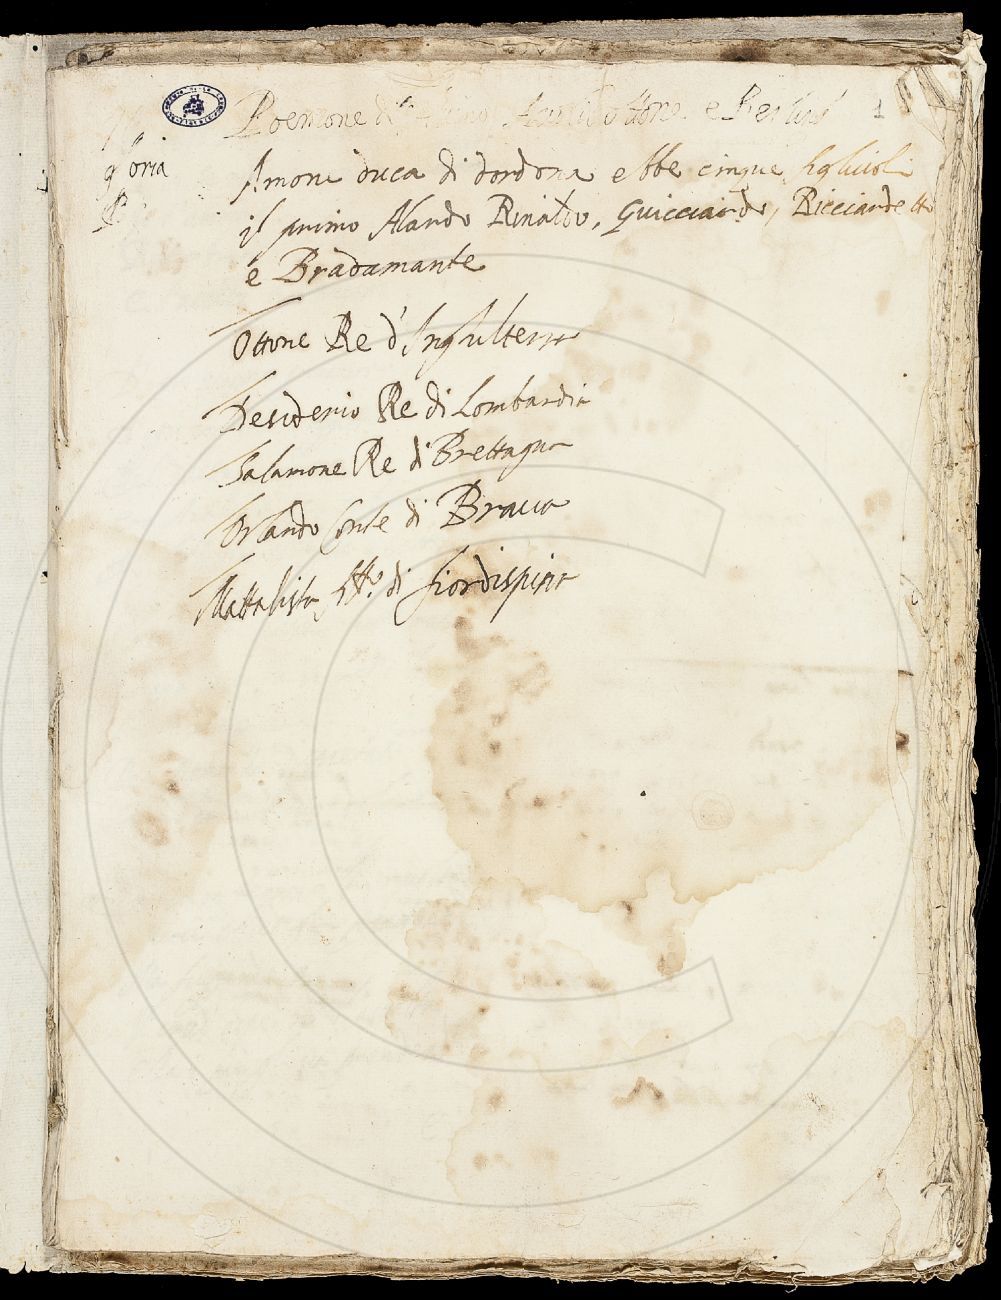 e Berlin
1
Amone duca di dordona ebbe cinque figliuoli
il primo Alardo Rinaldo, Guicciardo, Ricciardetto
e Bradamante
Ottone Re d'Inghilterra
Desiderio Re di Lombardia
Salamone Re di Brettagna
Orlando Conte di Braua
Mattalista di fiordispina